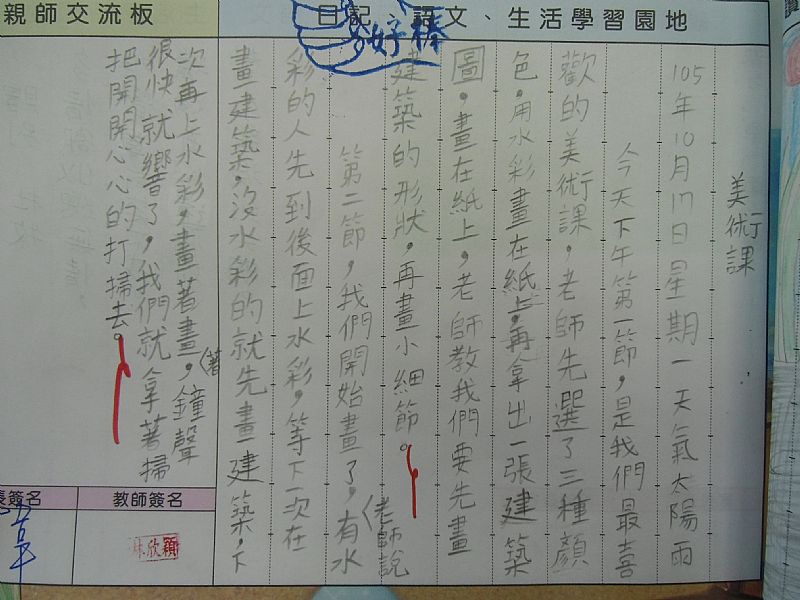 日記、語文、生活學習園地
好棒
美術課
105年10月17日星期一天氣太陽雨
今天下午第一節，是我們最喜
歡的美術課，老師先選了三種顏
色，用水彩畫在紙上，再拿出一張建築
圖，畫在紙上，老師教我們要先畫
建築的形狀，再畫小細節。
第二節，我們開始畫了，有水
老師說
彩的人先到後面上水彩，等下一次在
畫建築，沒水彩的就先畫建築，下
親師交流板
次再上水彩，畫著畫，鐘聲
著
很快就響了，我們就拿著掃
把開開心心的打掃去。
長簽名
教師簽名
林欣穎